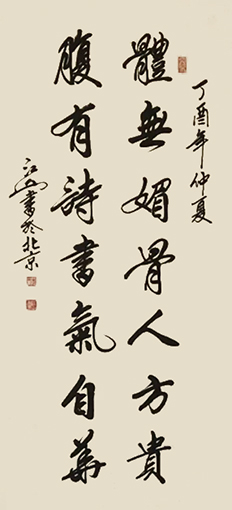 丁酉年仲夏
體無媚骨人方貴
腹有詩書氣自華
書於北京